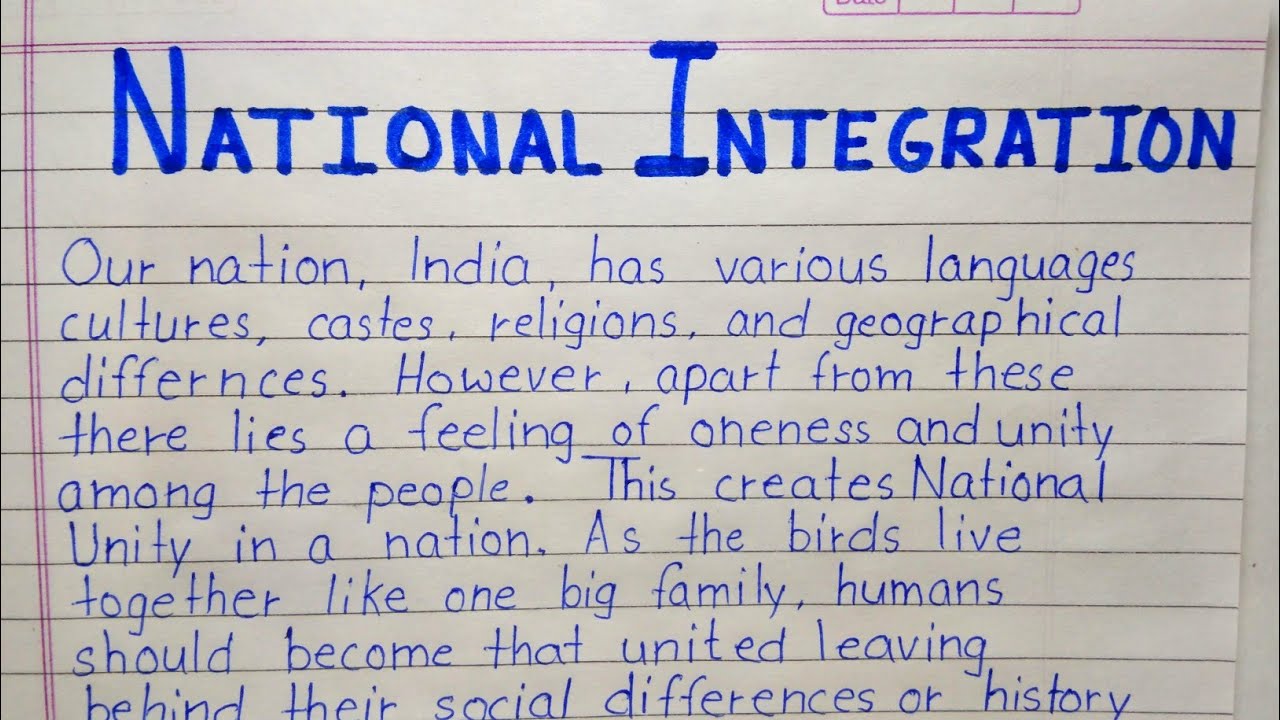 Date
NATIONAL INTEGRATION
Our nation, India, has various languages
cultures, castes, religions, and geographical
differnces. However, apart from these
there lies a feeling of oneness and unity
among the people. This creates National
Unity in a nation. As the birds live
together like one big family, humans
should become that united leaving
behind their social differences or history